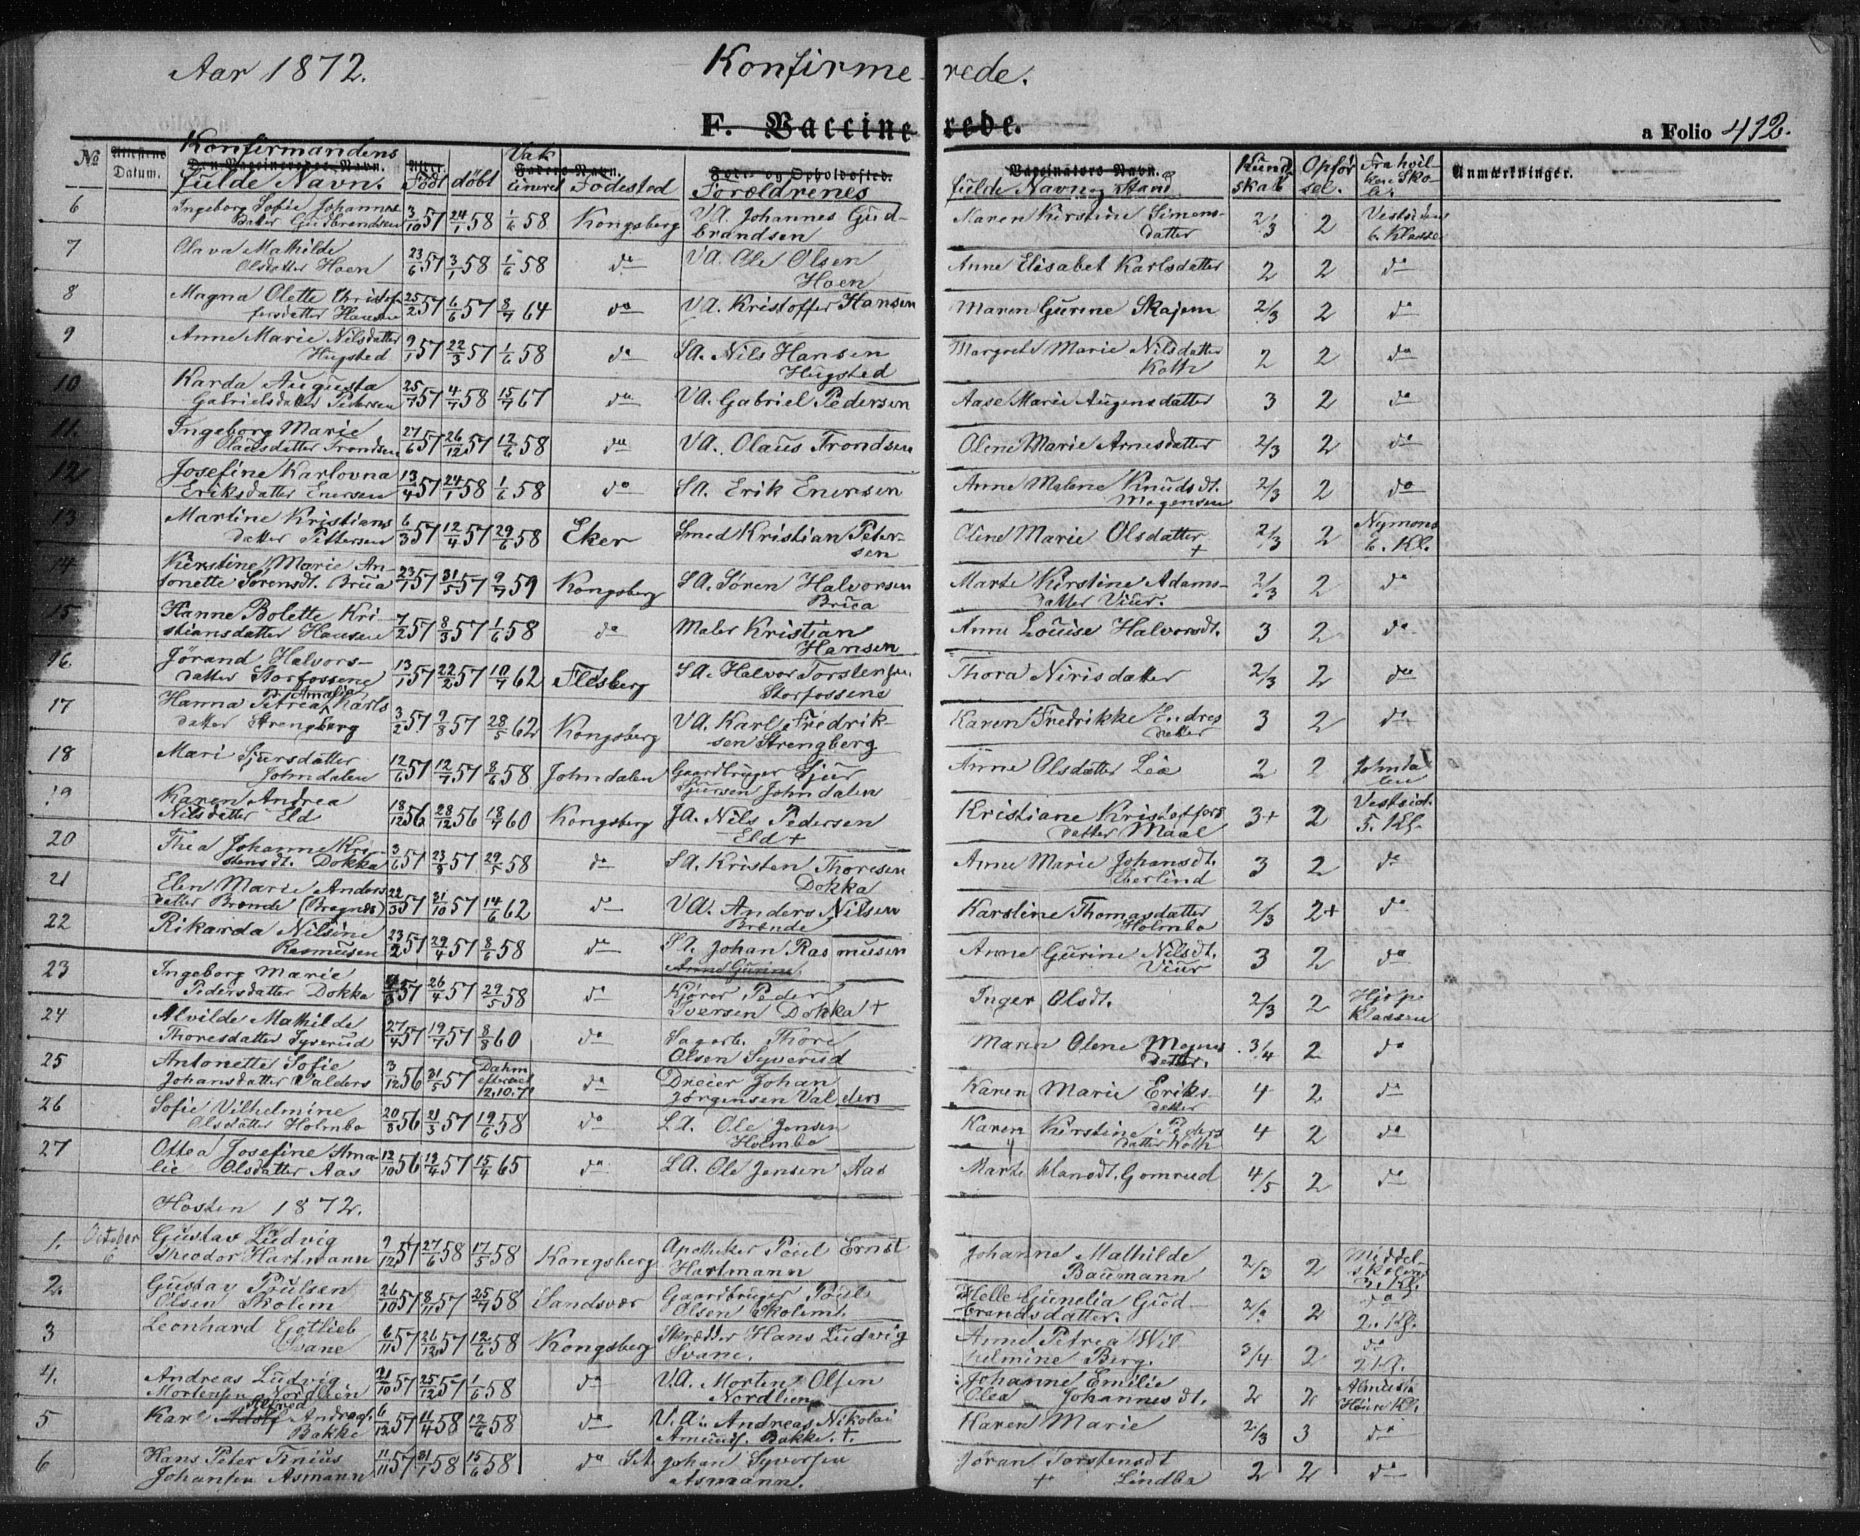 Aar 1872. Konfirmerede.
F. Vaccinerede. a Folio 412.
No Datum. Konfirmandens fulde Navn. Født døbt Vakcineret Fødested Forældrenes fulde Navn og Stand Kundskab Opførsel. Fra hvilken Skole. Anmærkninger.
6 Ingeborg Sofie Johannes Datter Gudbrandsen 3/10 57 24/1 58 1/6 58 Kongsberg VA. Johannes Gudbrandsen Karen Kirstine Simensdatter 2/3 2 Vestsiden 6. Klasse
7 Olava Mathilde Olsdatter Hoen 23/6 57 3/1 58 1/6 58 do VA. Ole Olsen Hoen Anne Elisabet Karlsdatter 2 2 do
8 Magna Olette Christoffersdatter Hansen 25/2 57 6/6 57 8/7 64 do VA. Kristoffer Hansen Maren Gurine Skajem 2/3 2 do
9 Anne Marie Nilsdatter Hugsted 9/1 57 22/3 57 1/6 58 do SA. Nils Hansen Hugsted Margrete Marie Nilsdatter Koth 2 2 do
10 Karda Augusta Gabrielsdatter Pedersen 25/7 57 4/7 58 15/7 67 do VA. Gabriel Pedersen Aase Marie Augensdatter 3 2 do
11. Ingeborg Marie Olausdatter Trondsen 27/6 57 26/12 57 12/6 58 do VA. Olaus Trondsen Olene Marie Arnesdatter 2/3 2 do
12 Josefine Karlovna Eriksdatter Enersen 13/4 57 24/1 58 1/6 58 do SA. Erik Enersen Anne Malene Knudsdt. Mogensen 2/3 2 do
13 Martine Kristiansdatter Pettersen 6/3 57 12/4 57 29/6 58 Eker Smed Kristian Petersen Olene Marie Olsdatter + 2/3 2 Nymoens 6. Kl.
14 Kirstine Marie Antonette Sørensdt. Brua 23/1 57 31/5 57 9/7 59 Kongsberg SA. Søren Halvorsen Brua Marte Kirstine Adamsdatter Viur. 2/3 2 do
15 Hanne Bolette Kristiansdatter Hansen 7/2 57 8/3 57 1/6 58 do Maler Kristian Hansen Anne Louise Halvorsdt. 3 2 do
16 Jørand Halvorsdatter Storfossene 13/1 57 22/2 57 10/7 62 Flesberg SA. Halvor Torstensen Storfossene Thora Nirisdatter 2/3 2 do
17 Hanna Petrea Amalia Karlsdatter Strengberg 3/2 57 9/8 57 28/5 62 Kongsberg VA. Karl Fredriksen Strengberg Karen Fredrikke Endresdatter 3 2 do
18 Mari Sjursdatter Johndalen 12/6 57 12/7 57 8/6 58 Johndalen Gaardbruger Sjur Sjursen Johndalen Anne Olsdatter Lia 2 2 Johndalen
19 Karen Andrea Nilsdatter Eld 18/12 56 28/12 56 18/7 60 Kongsberg JA. Nils Pedersen Eld + Kristiane Kristoffersdatter Maal 3+ 2 Vestsid. 5. Kl.
20 Thea Johanne Kristensdt. Dokka 3/6 57 23/8 57 29/5 58 do SA. Kristen Thoresen Dokka Anne Marie Johansdt. Eberlind 3 2 do
21 Elen Marie Andersdatter Brønde (Bragnæs) 22/3 57 31/10 57 14/6 62 do VA. Anders Nilsen Brønde Karstine Thomasdatter Holmbo 2/3 2+ do
22 Rikarda Nilsine Rasmusen 23/2 57 29/4 57 8/6 58 do SA. Johan Rasmussen Anne Gurine Anne Gurine Nilsdt. Viur 3 2 do
23 Ingeborg Marie Pedersdatter Dokka 57 26/4 57 29/5 58 do Kjører Peder Iversen Dokka + Inger Olsdt. 2/3 2 Hjelpeklassen
24 Alvilde Mathilde Thoresdatter Syverud 27/4 57 19/7 57 8/8 60 do Sagarb. Thore Olsen Syverud Maren Olene Mognsdatter. 3/4 2 do
25 Antonette Sofie Johansdatter Valders 3/12 56 31/5 57 do Dreier Johan Jørgensen Valders Karen Marie Eriksdatter 4 2 do
26 Sofie Vilhelmine Olsdatter Holmbo 20/8 56 21/5 57 19/6 58 do LA. Ole Jensen Holmbo Karen Kirstine Pedersdatter Koth 4 2 do
27 Ottea Josefine Amalie Olsdatter Aas 12/10 56 19/4 57 15/4 65 do LA. Ole Jensen Aas Marte Gomrud 4/5 2 do
Høsten 1872.
1. October 6 Gustav Ludvig Theodor Hartmann 9/12 57 27/6 58 17/5 58 Kongsberg Apotheker Poul Ernst Hartmann Johanne Mathilde Baumann 2/3 2 Middelskolens 3. Kl.
2. Gustav Poulsen Olsen Skolem 26/10 57 8/11 57 25/7 58 Sandsvær Gaardbruger Poul Olsen Skolem. Helle Gunelia Gudbrandsdatter. 2/3 2 do 2. Kl.
3 Leonhard Gotlieb Svane 6/11 57 26/12 57 12/6 58 Kongsberg Skrædder Hans Ludvig Svane. Anne Petrea Wilhelmine Berg. 3/4 2 do 2 Kl.
4. Andreas Ludvig Mortensen Nordlien 21/10 57 25/12 57 1/6 58 do V.A. Morten Olsen Nordlien Johanne Emilie Olea Johannesdt. 2 2
5 Karl Adolf Alfred Andreas. Bakke 6/12 57 11/4 58 12/6 58 do V.A. Andreas Nikolai Amunds. Bakke. +. Karen Marie 2/3 3 do
6 Hans Peter Tinius Johansen Asmann 11/11 57 31/1 58 15/6 58 do SA Johan Syversen Asmann. Jøran Torstensdt + Lindba 2 2 do